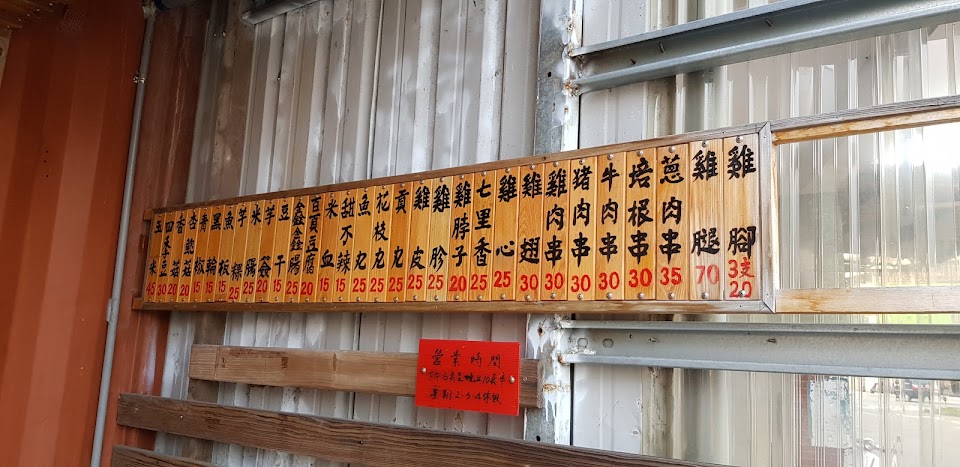 雞腳 3支 20
雞腿 70
蔥肉串 35
培根串 30
牛肉串 30
猪肉串 30
雞肉串 30
雞翅 30
雞心 25
七里香 25
雞脖子 20
雞胗 25
雞皮 25
貢丸 25
花枝丸 25
魚丸 25
甜不辣 15
米血 15
百頁豆腐 20
鑫鑫腸 25
豆干 15
芋
米
芋粿 25
魚板 15
黑輪 15
青椒 15
杏鮑菇 20
香菇 20
四季豆 30
玉米 45
營業時間